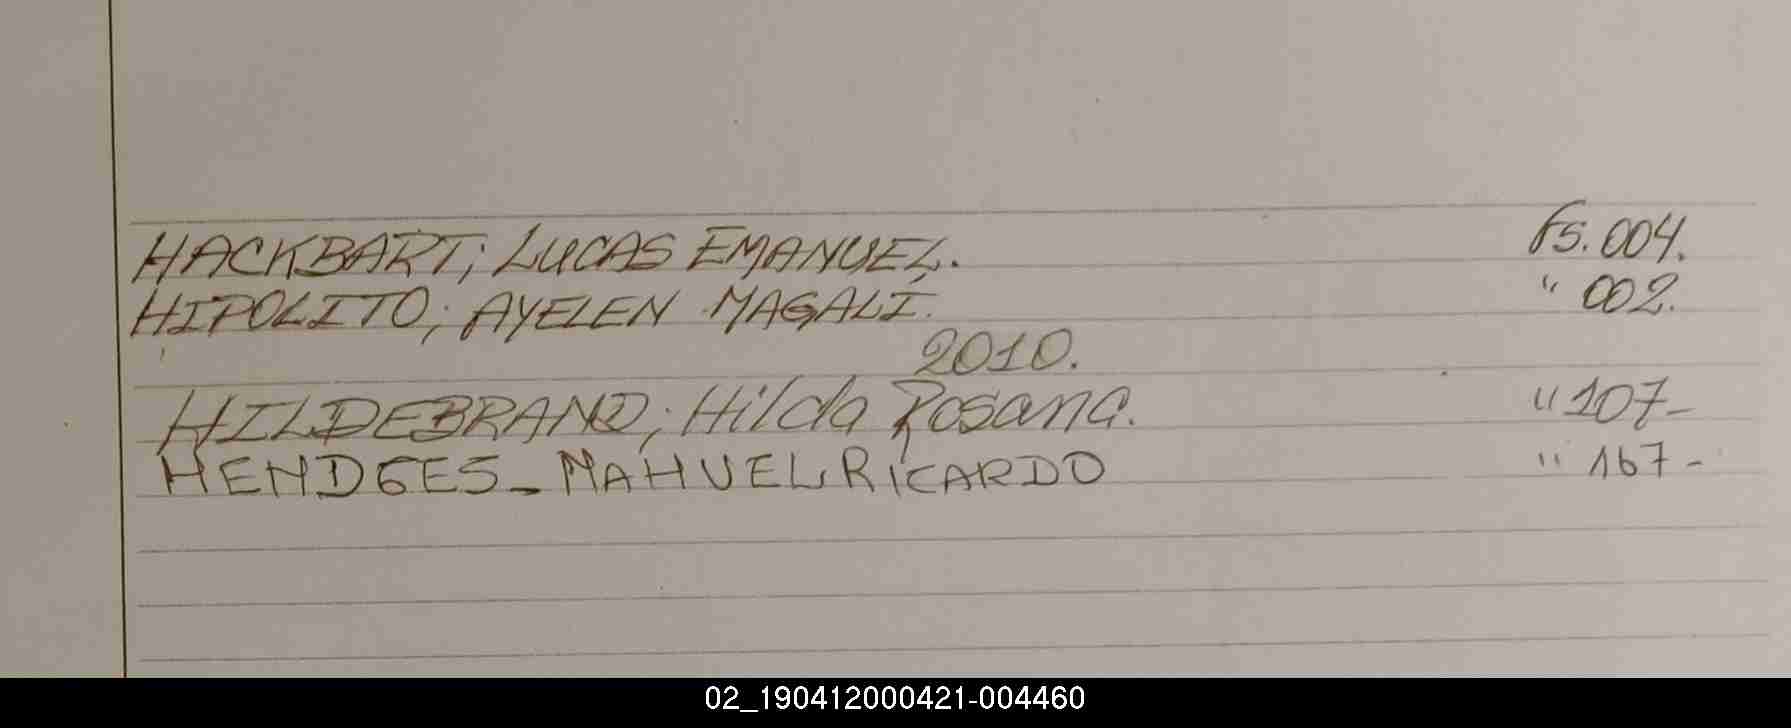 HACKBART; LUCAS EMANUEL. Fs. 004.
HIPOLITO; AYELEN MAGALÍ. " 002.
2010.
HILDEBRAND; Hilda Rosana. " 107-
HENDGES_ NAHUEL RICARDO " 167-
02_190412000421-004460